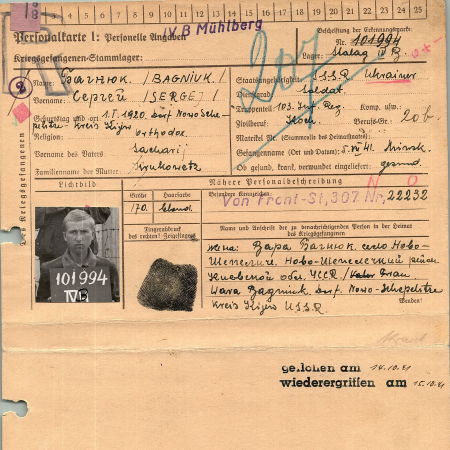 3 4 5 6 7 8 9 10 11 12 13 14 15 16 17 18 19 20 21 22 23 24 25
18
V B Mühlberg
Personalkarte I: Personelle Angaben
Beschriftung der Erkennungsmarke
Nr. 101994
Kriegsgefangenen-Stammlager:
Lager: Stalag IV B
Name: Багнюк /BAGNIUK/
Staatsangehörigkeit: SSSR Ukrainer
Vorname: Сергей /SERGEJ/
Dienstgrad: Soldat.
Geburtstag und -ort 1.5.1920. Dorf Nowo-Schepeliče. Kreis Kijew
Truppenteil: 103. Inf. Reg. Komp. usw.:
Zivilberuf: Koch. Berufs-Gr.: 20b.
Religion: Orthodox
Matrikel Nr. (Stammrolle des Heimatstaates):
Vorname des Vaters: Sacharij
Gefangennahme (Ort und Datum): 5.VII.41. Minsk.
Familienname der Mutter:
Ob gesund, krank, verwundet eingeliefert: gesund.
Des Kriegsgefangenen
Lichtbild
Nähere Personalbeschreibung
Größe
Haarfarbe
Besondere Kennzeichen:
170. blond.
Von Front-St. 307 Nr. 22232
Fingerabdruck
des rechten! Zeigefingers
Name und Anschrift der zu benachrichtigenden Person in der Heimat
des Kriegsgefangenen
101994
IV B
жена: Вара Багнюк. село Ново-
Шепеличе. Ново-Шепеличский район
Киевской обл. УССР /
Wara Bagniuk. Dorf Nowo-Schepelitze
Kreis Kijew USSR
Wenden!
geflohen am 14.10.41
wiederergriffen am 15.10.41